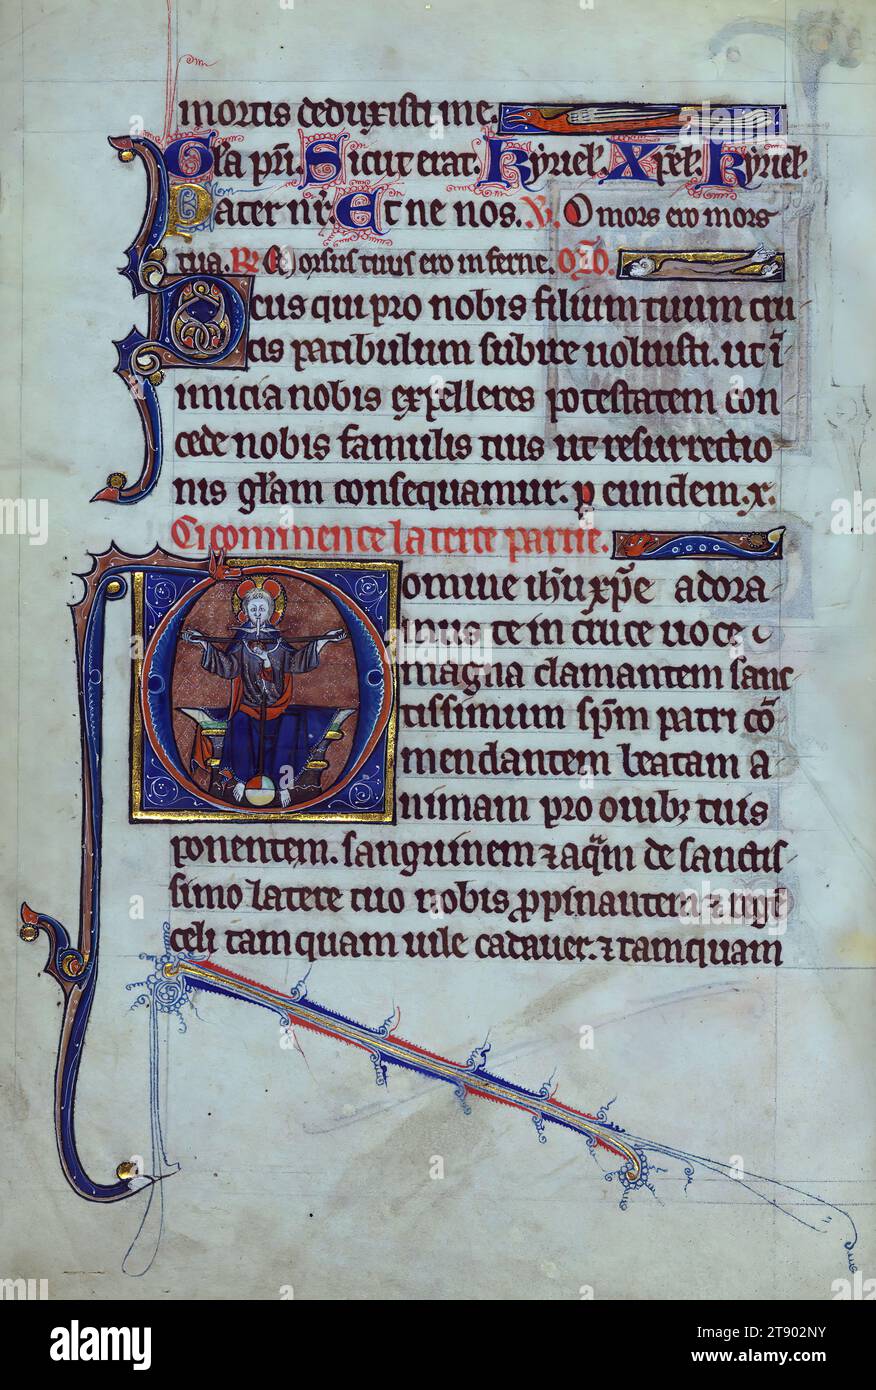 mortis deduxisti me.
Gl'a pri. Sicut erat. Kyriel'. Xpel'. Kyriel'.
Pater nr. Et ne nos. V. O mors ero mors
tua. R. Morsus tuus ero inferne. Oro.
Deus qui pro nobis filium tuum cru
cis patibulum subire voluisti. ut i
nimicia nobis expelleres potestatem con
cede nobis famulis tuis ut resurrectio
nis gl'am consequamur. p eundem. x.
Ci commence la terce partie.
Domine ihu xpe adora
mus te in cruce voce
magna clamantem sanc
tissimum spm patri co
mendantem beatam a
nimam pro ovibz tuis
ponentem. sanguinem ⁊ aqm de sanctis
simo latere tuo nobis ppinantem ⁊ rege
celi tamquam vile cadaver. ⁊ tamquam
alamy
Image ID: 2T902NY
www.alamy.com